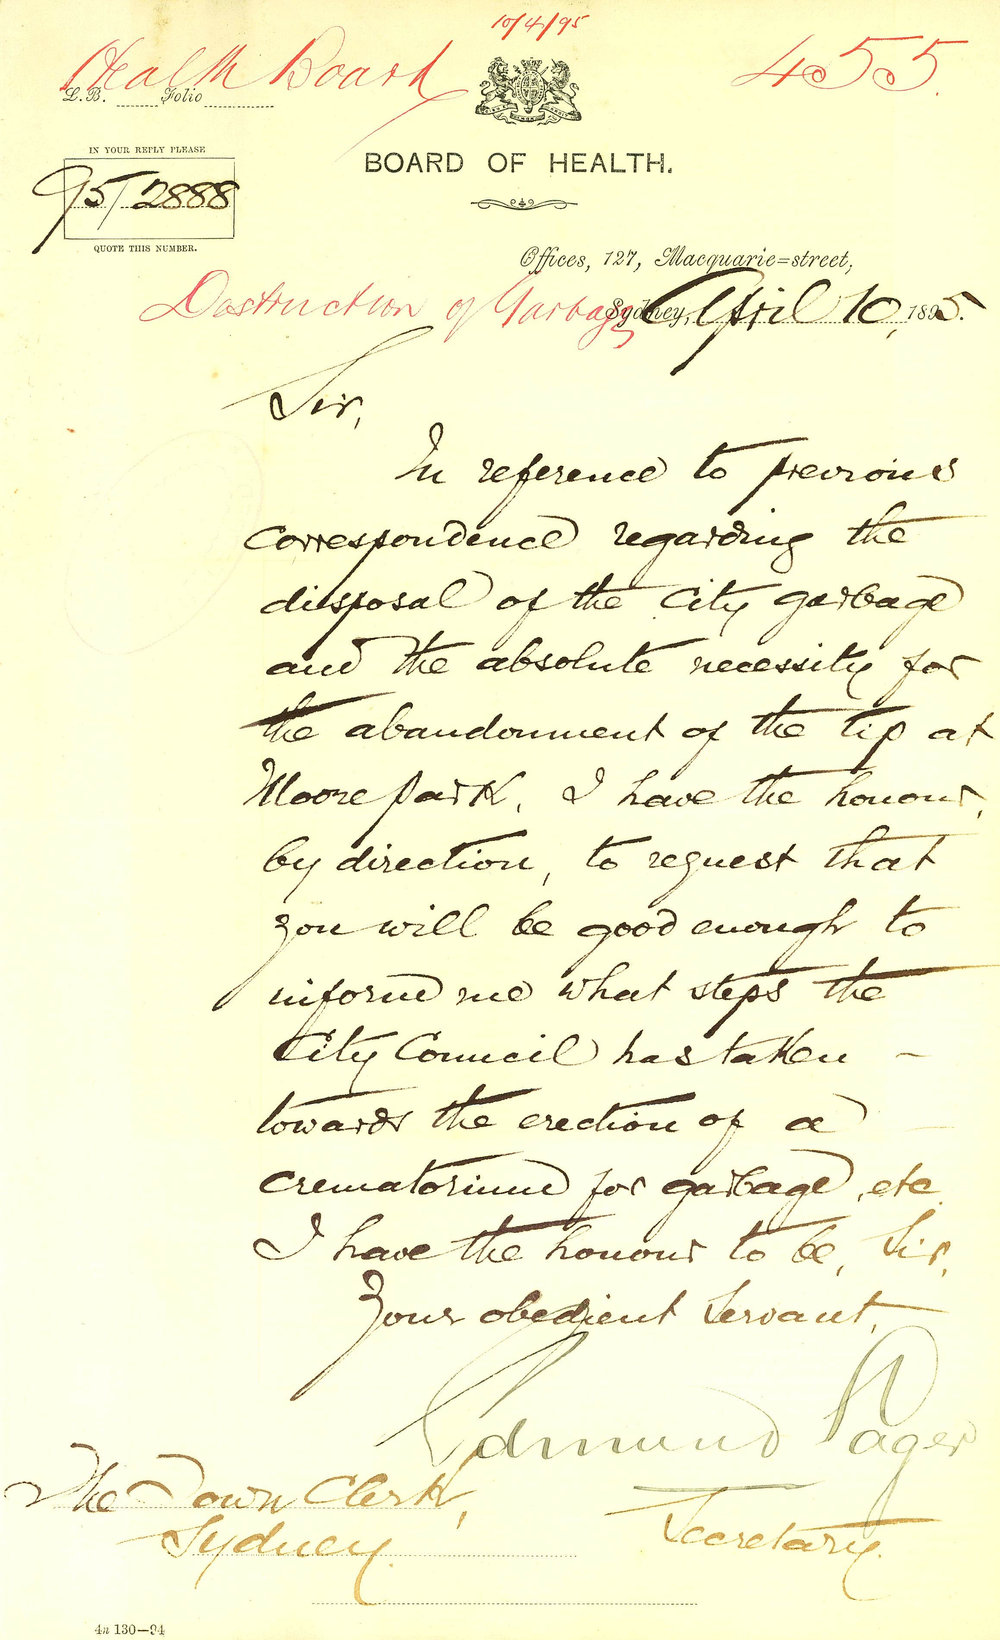 10/4/95
Health Board 455
L.B. Folio
IN YOUR REPLY PLEASE
95/2888
QUOTE THIS NUMBER.
BOARD OF HEALTH.
Offices, 127, Macquarie=street,
Destruction of Garbage
Sydney, April 10, 1895.
Sir,
In reference to previous
correspondence regarding the
disposal of the City garbage
and the absolute necessity for
the abandonment of the tip at
Moore Park, I have the honour,
by direction, to request that
you will be good enough to
inform me what steps the
City Council has taken –
towards the erection of a
crematorium for garbage, etc.
I have the honour to be, Sir,
Your obedient Servant,
Edmund Sager
Secretary.
The Town Clerk,
Sydney.
4n 130—94